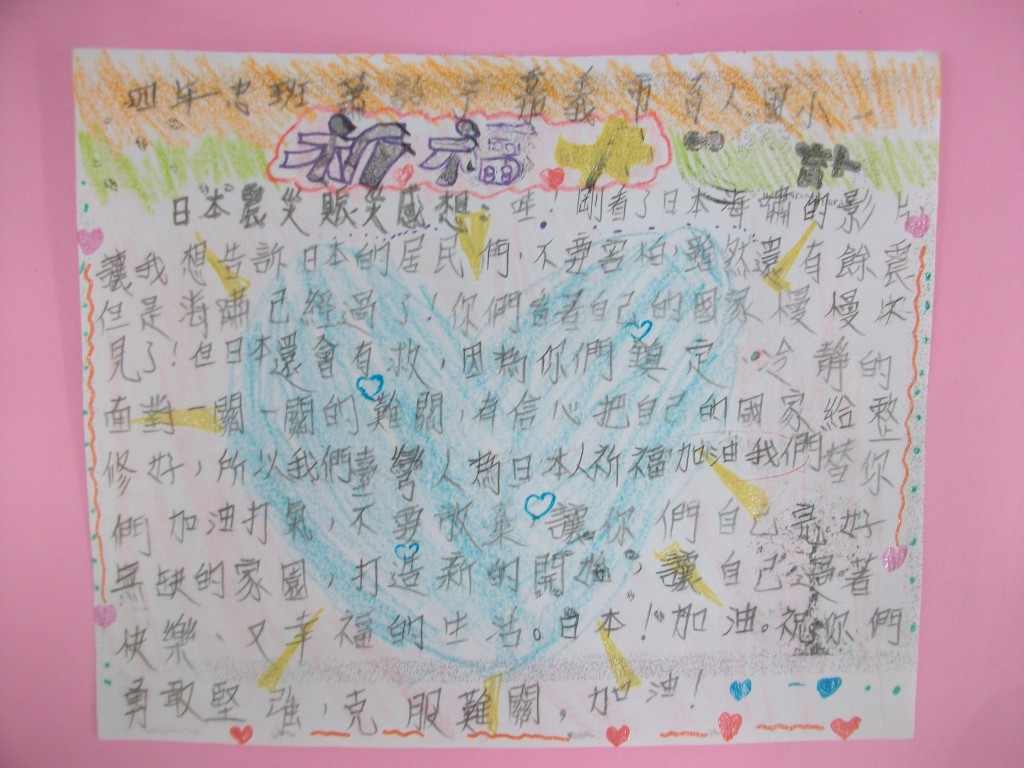 四年忠班 蕭 于 嘉義市育人國小
祈福卡
日本震災賑災感想：哇！剛看了日本海嘯的影片
讓我想告訴日本的居民們，不要害怕，雖然還有餘震
但是海嘯已經過了！你們看著自己的國家慢慢不
見了！但日本還會有救，因為你們鎮定、冷靜的
面對一關一關的難關，有信心把自己的國家給整
修好，所以我們臺灣人為日本人祈福加油我們替你
們加油打氣，不要放棄，讓你們自己完好
無缺的家園，打造新的開始，讓自己過著
快樂、又幸福的生活。日本！加油。祝你們
勇敢堅強，克服難關，加油！